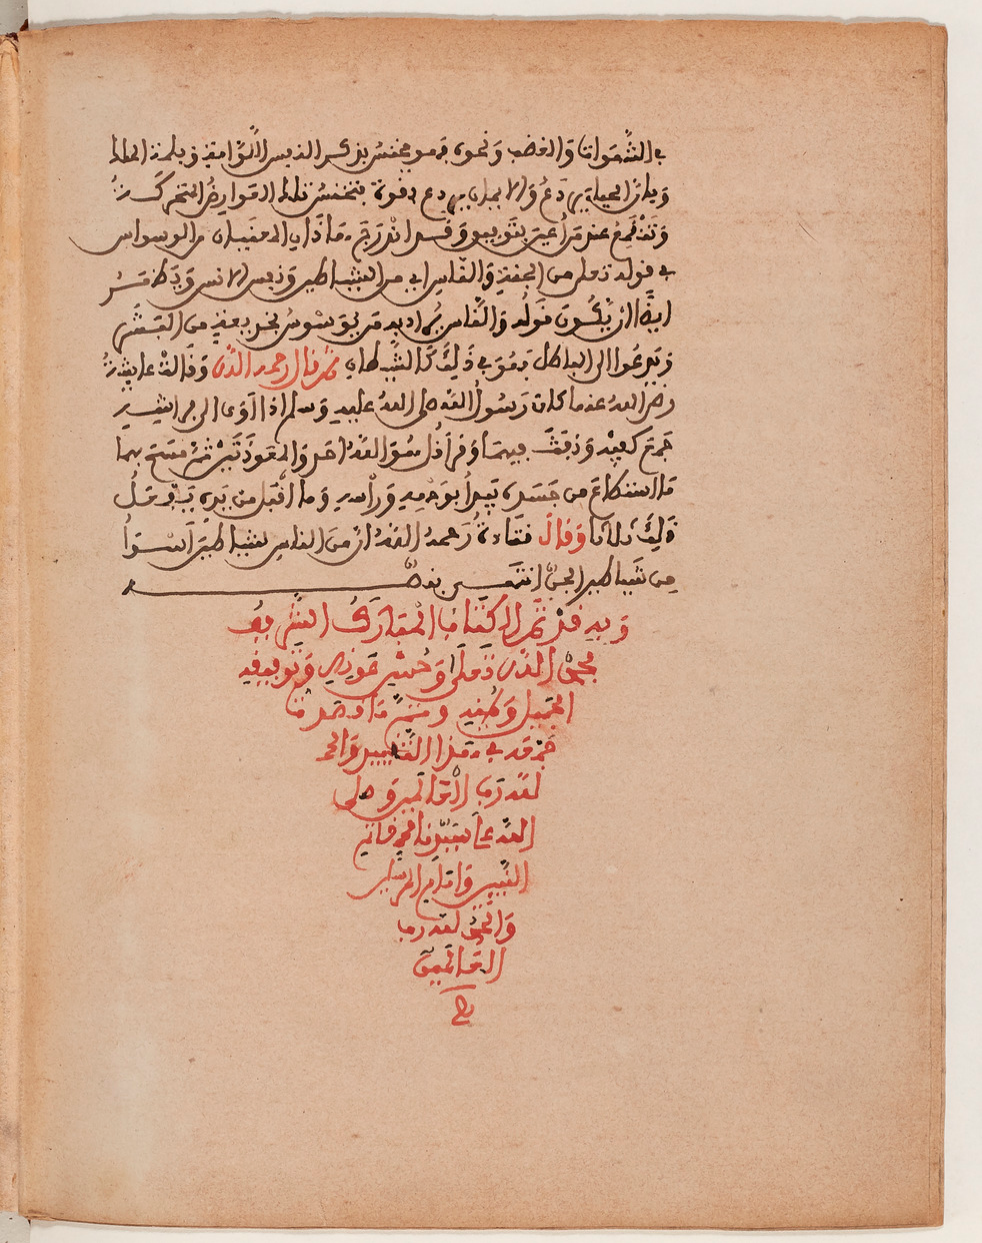 في الشهوات والغضب ونحوه فهو يخنس بذكر النفس اللوامة وبلمة الملك
وبأن الحياء يردع والإيمان يردع بقوة فتخنس تلك العوارض المتحركة
وتنقمع عند من أعين بتوفيق وقد اندرج هذان المعنيان من الوسواس
في قوله تعلى من الجنة والناس أي من الشياطين ونفس الانس ويظهر
ايضا ان يكون قوله والناس يراد به من يوسوس بخدعه من البشر
ويدعوا الى الباطل فهو في ذلك كالشيطان ثم قال رحمه الله وقالت عايشة
رضي الله عنها كان رسول الله صلى الله عليه وسلم اذا اوى الى فراشه
جمع كفيه ونفث فيهما وقرأ قل هو الله احد والمعوذتين ثم مسح بهما
ما استطاع من جسده يبدأ بوجهه ورأسه وما اقبل من بدنه يفعل
ذلك ثلاثا وقال قتادة رحمه الله ان من الناس شياطين
من شياطين الجن انتهى
وبه قد تم الكتاب المبارك الشريف
بحمد الله تعلى وحسن عونه وتوفيقه
الجميل
في هذا التفسير والحمد
لله رب العالمين وصلى
الله على سيدنا محمد خاتم
النبيين وامام المرسلين
والحمد لله رب
العالمين